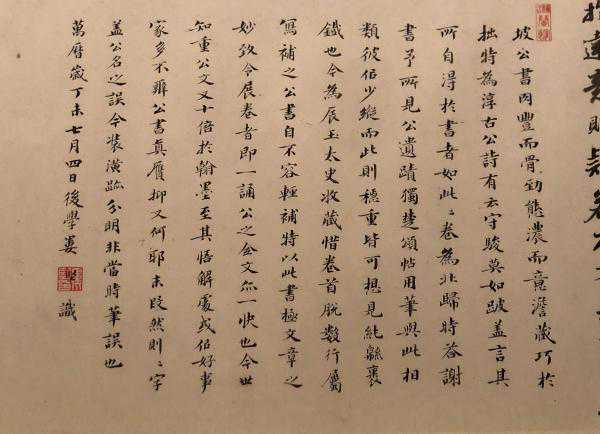 達意則疑若不
坡公書肉豐而骨勁態濃而意澹藏巧於
拙特為淳古公詩有云守駿莫如跛蓋言其
所自淂於書者如此〻卷為北歸時答謝
書予所見公遺蹟獨楚頌帖用筆與此相
類彼似少縱而此則穩重皆可想見純緜裹
鐵也今為辰玉太史收藏惜卷首脫數行屬
寫補之公書自不容輕補特以此書極文章之
妙致令展卷者即一誦公之全文亦一快也今世
知重公文又十倍於翰墨至其悟解處或似好事
家多不辨公書真贗抑又何耶末段然則〻字
蓋公名之誤今裝潢跡分明非當時筆誤也
萬曆歲丁未七月四日後學婁堅識